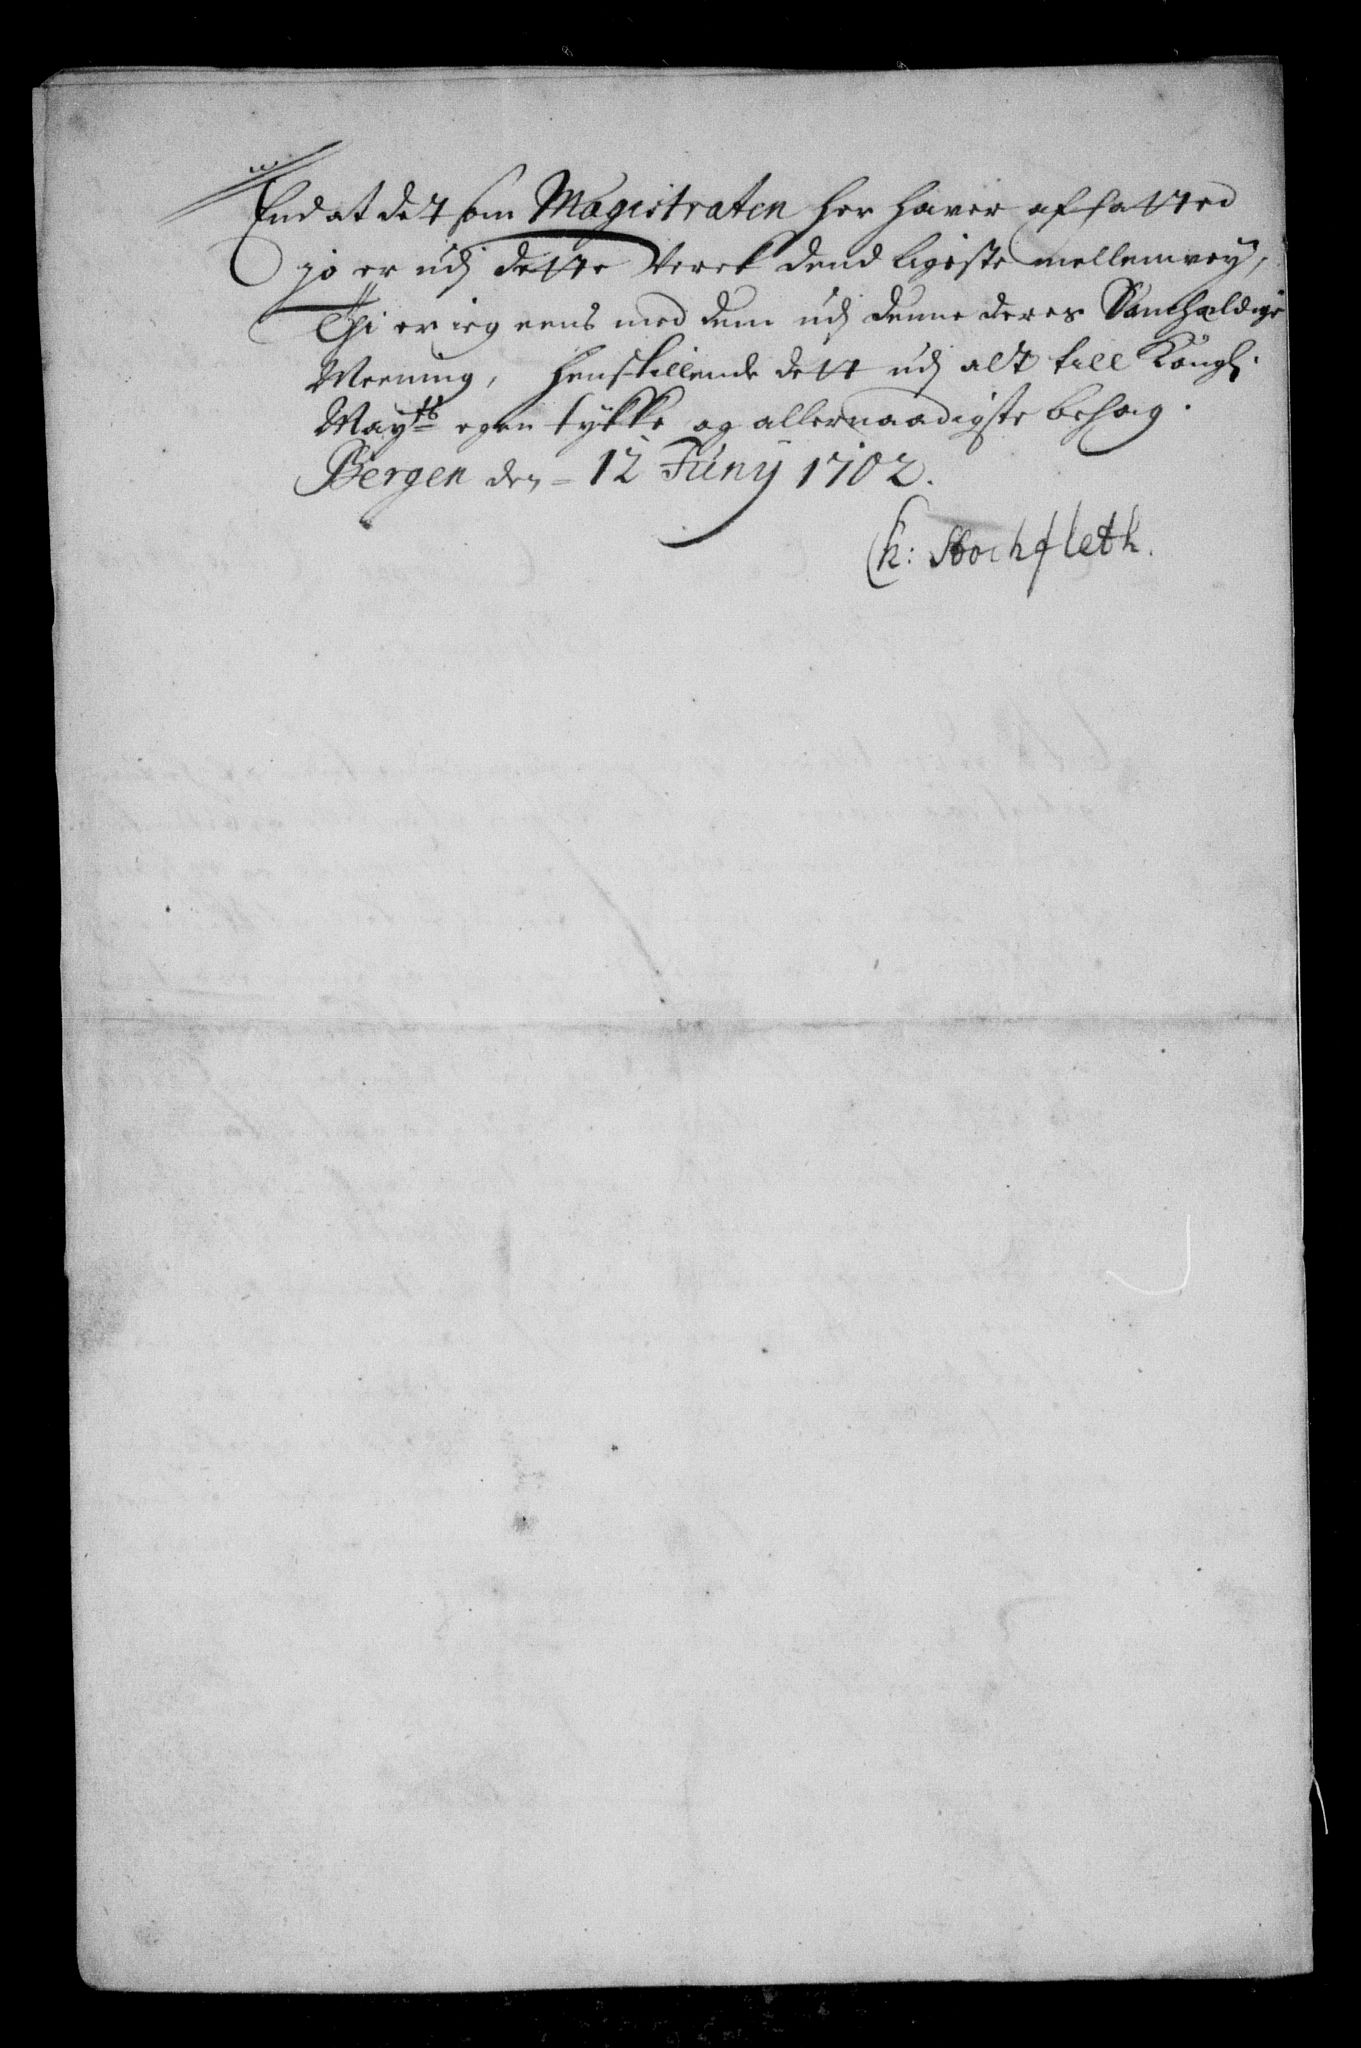 End at det som Magistraten her haver affatted
jo er udj dette verck dend ligeste mellemvey,
Thi er ieg eens med dem udj denne deres Samhældige
Meening, henstillende dett udj alt till Kongl:
Mayts egen tykke og allernaadigste behag.
Bergen den 12 Juny 1702.
Stochfleth.